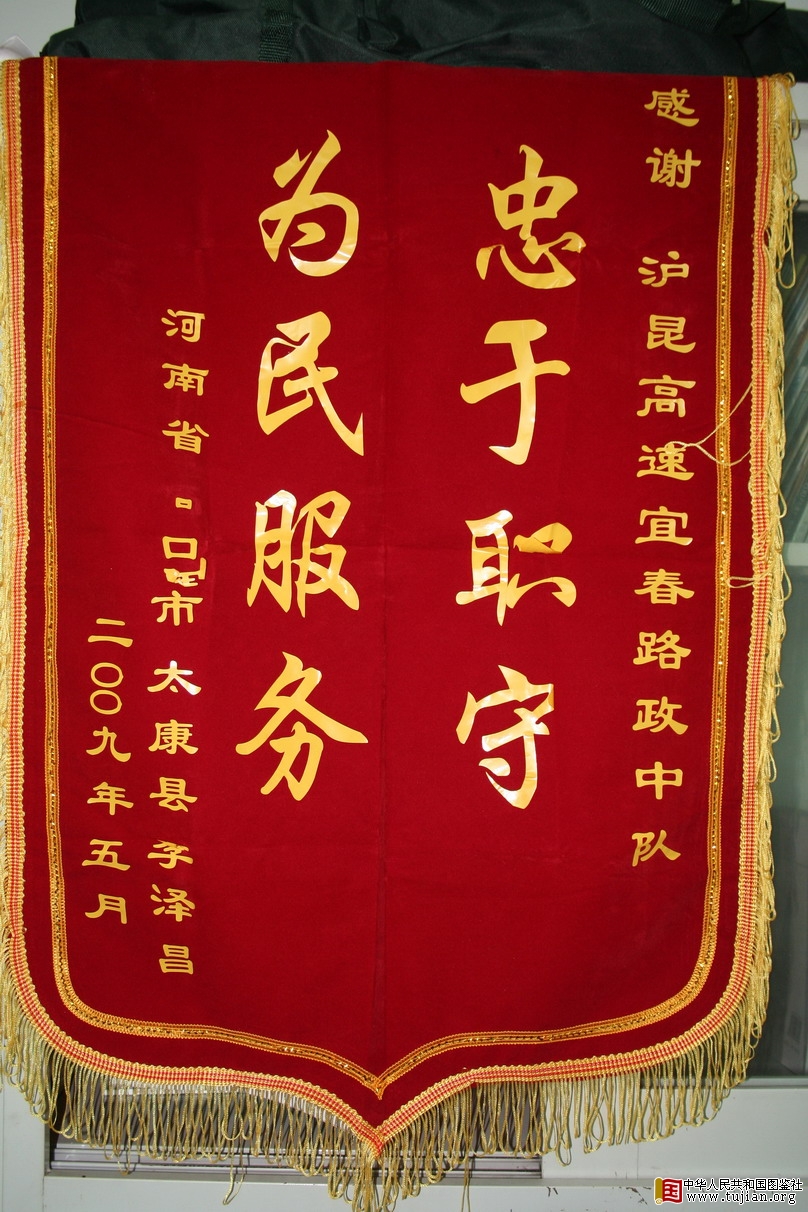 感谢 沪昆高速宜春路政中队
忠于职守
为民服务
河南省 市 太康县李泽昌
二〇〇九年五月
中华人民共和国图鉴社
www.tujian.org